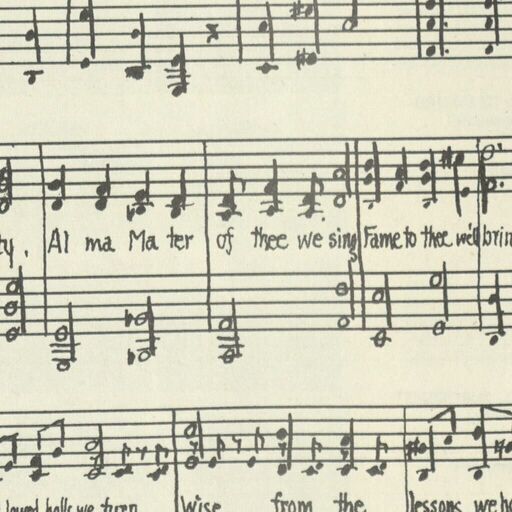 ty, Al ma Ma ter of thee we sing Fame to thee we'll brin
loved halls we turn Wise from the lessons we ho